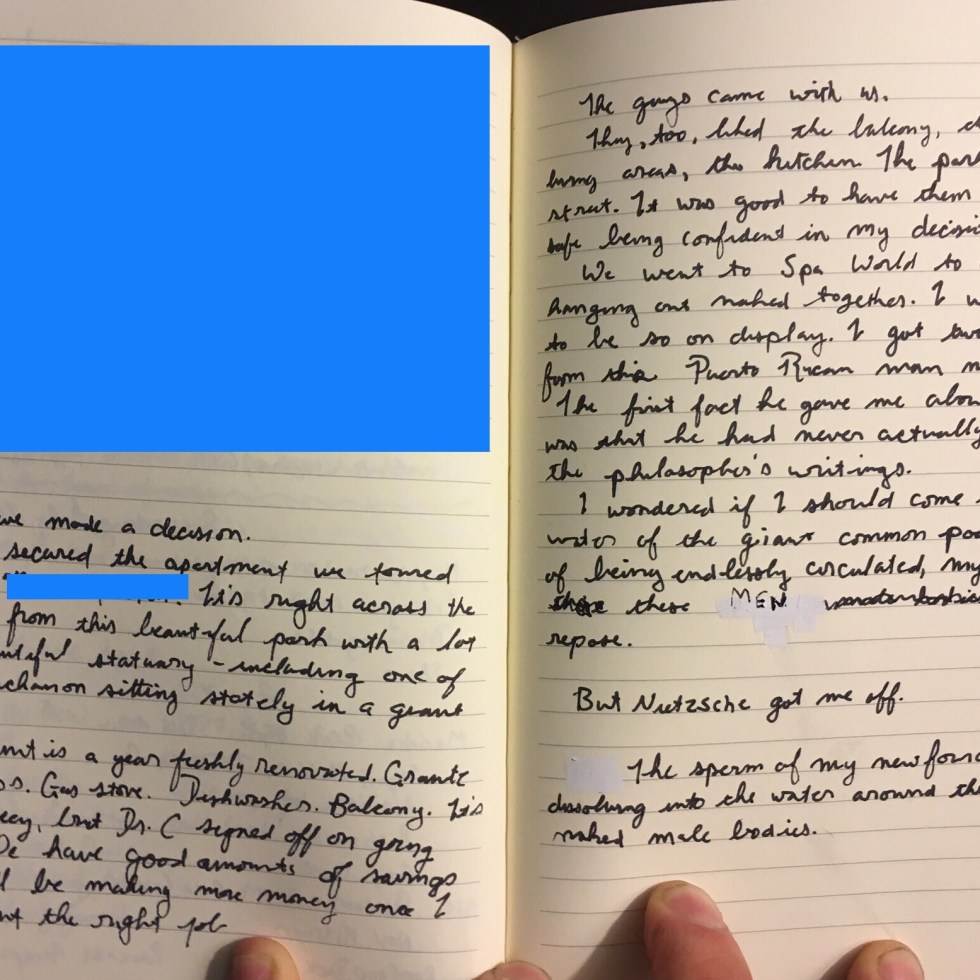 we made a decision.
secured the apartment we toured
It's right across the
from this beautiful park with a lot
statuary - including one of
sitting stately in a giant
is a year freshly renovated. Granite
Gas stove. Dishwasher. Balcony. It's
but Dr. C signed off on going
have good amounts of savings
be making more money once I
the right job
The guys came with us.
They, too, liked the balcony,
living areas, the kitchen. The
street. It was good to have them
safe being confident in my
We went to Spa World to
hanging out naked together. I
to be so on display. I got
from this Puerto Rican man
The first fact he gave me
was that he had never actually
the philosopher's writings.
I wondered if I should come
water of the giant common
of being endlessly circulated, my
these MEN
repose.
But Nietzsche got me off.
The sperm of my new
dissolving into the water around
naked male bodies.